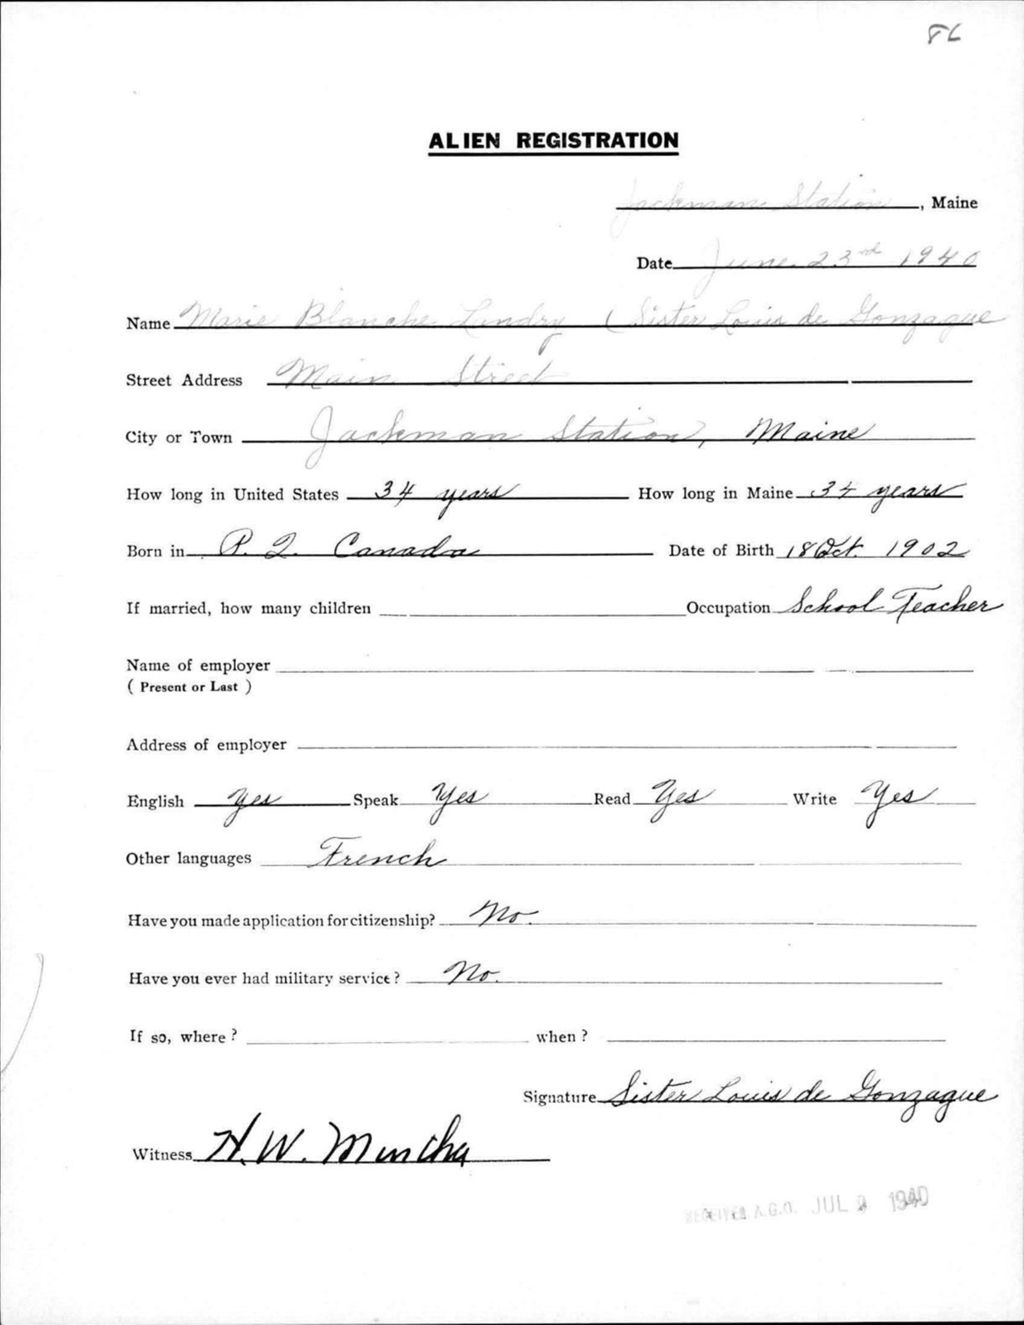 86
ALIEN REGISTRATION
Jackman Station, Maine
Date June 23rd 1940
Name Marie Blanche Landry (Sister Louis de Gonzague
Street Address Main Street
City or Town Jackman Station, Maine
How long in United States 34 years How long in Maine 34 years
Born in P. Q. Canada Date of Birth 18 Oct. 1902
If married, how many children Occupation School Teacher
Name of employer
( Present or Last )
Address of employer
English Yes Speak Yes Read Yes Write Yes
Other languages French
Have you made application for citizenship? No.
Have you ever had military service? No.
If so, where? when?
Signature Sister Louis de Gonzague
Witness H. W. 
RECEIVED A.G.O. JUL 1940